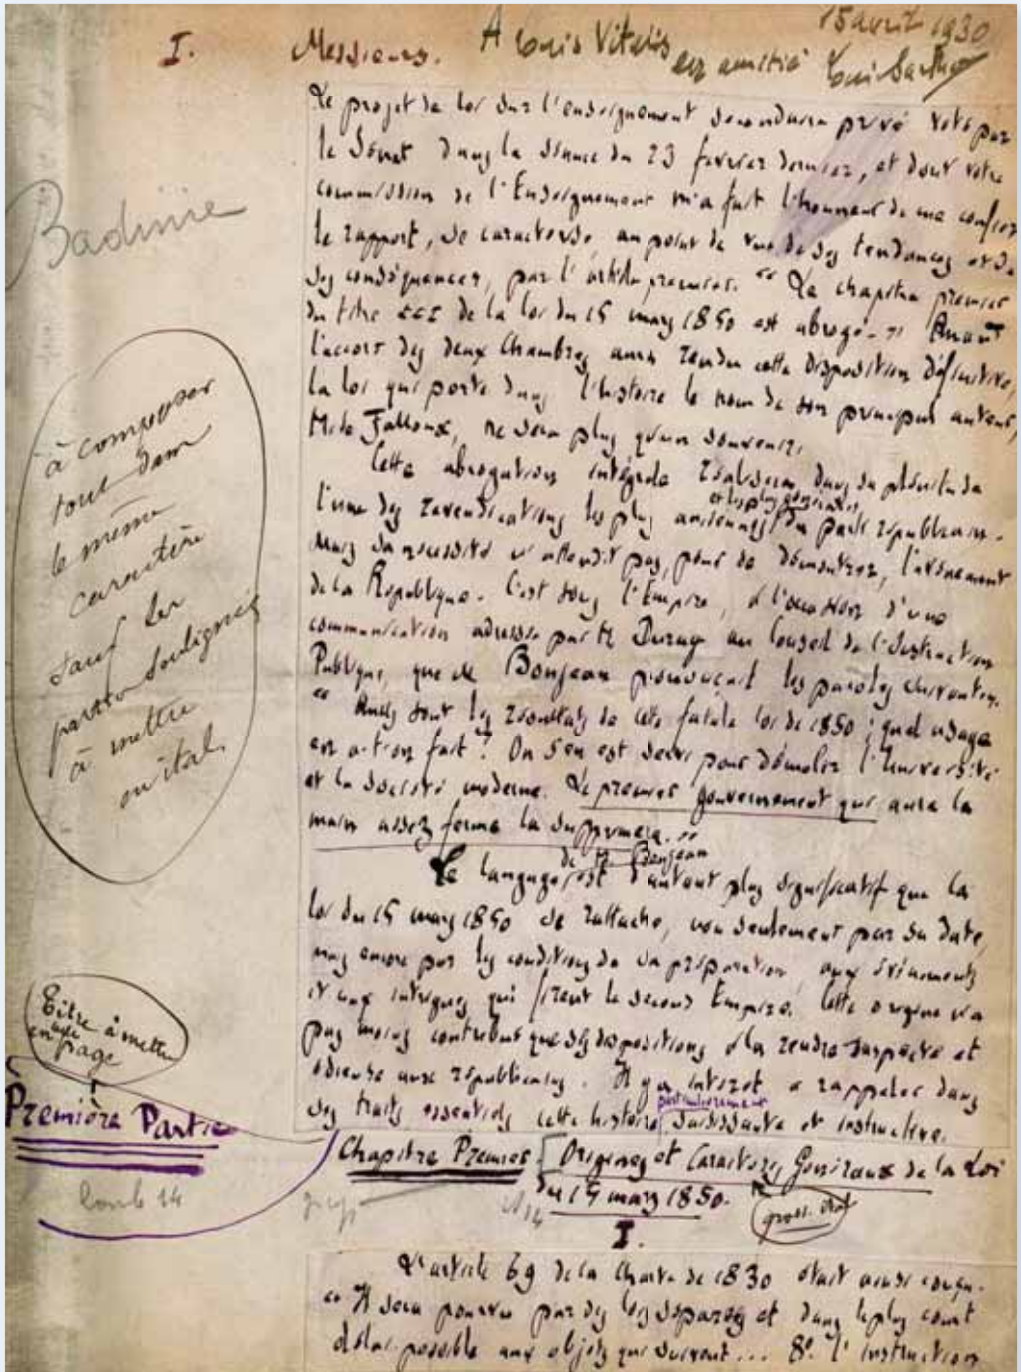 15 avril 1930
A Louis Vitalis
en amitié Louis Barthou
I. Messieurs.
Le projet de loi sur l'enseignement secondaire privé voté par
le Sénat dans la séance du 23 février dernier, et dont votre
commission de l'Enseignement m'a fait l'honneur de me confier
le rapport, se caractérise, au point de vue de ses tendances et de
ses conséquences, par l'article premier. "Le chapitre premier
du titre III de la loi du 15 mars 1850 est abrogé." Quand
l'accord des deux Chambres aura rendu cette disposition définitive,
la loi qui porte dans l'histoire le nom de son principal auteur,
M. de Falloux, ne sera plus qu'un souvenir.
Cette abrogation intégrale réalisera dans sa plénitude
l'une des revendications les plus anciennes et les plus générales du parti républicain.
Mais sa nécessité n'attendit pas, pour se démontrer, l'avènement
de la République. C'est sous l'Empire, à l'occasion d'une
communication adressée par M. Duruy au Conseil de l'Instruction
Publique, que M. Bonjean prononçait les paroles suivantes.
"Quels sont les résultats de cette fatale loi de 1850 ; quel usage
en a-t-on fait ? On s'en est servi pour démolir l'Université
et la société moderne. Le premier gouvernement qui aura la
main assez ferme la supprimera."
Le langage de M. Bonjean est d'autant plus significatif que la
loi du 15 mars 1850 se rattache, non seulement par sa date,
mais encore par les conditions de sa préparation, aux événements
et aux intrigues qui firent le second Empire. Cette origine n'a
pas moins contribué que ses dispositions à la rendre suspecte et
odieuse aux républicains. Il y a intérêt à rappeler dans
ses traits essentiels cette histoire particulièrement saisissante et instructive.
Chapitre Premier [Origines et Caractères Généraux de la Loi
du 15 mars 1850.
I.
L'article 69 de la Charte de 1830 était ainsi conçu.
"Il sera pourvu par des lois séparées et dans le plus court
délai possible aux objets qui suivent... 8°. l'instruction
à composer
tout dans
le même
caractère
sauf les
parties soulignées
à mettre
en ital.
Titre à mettre
en page
Première Partie